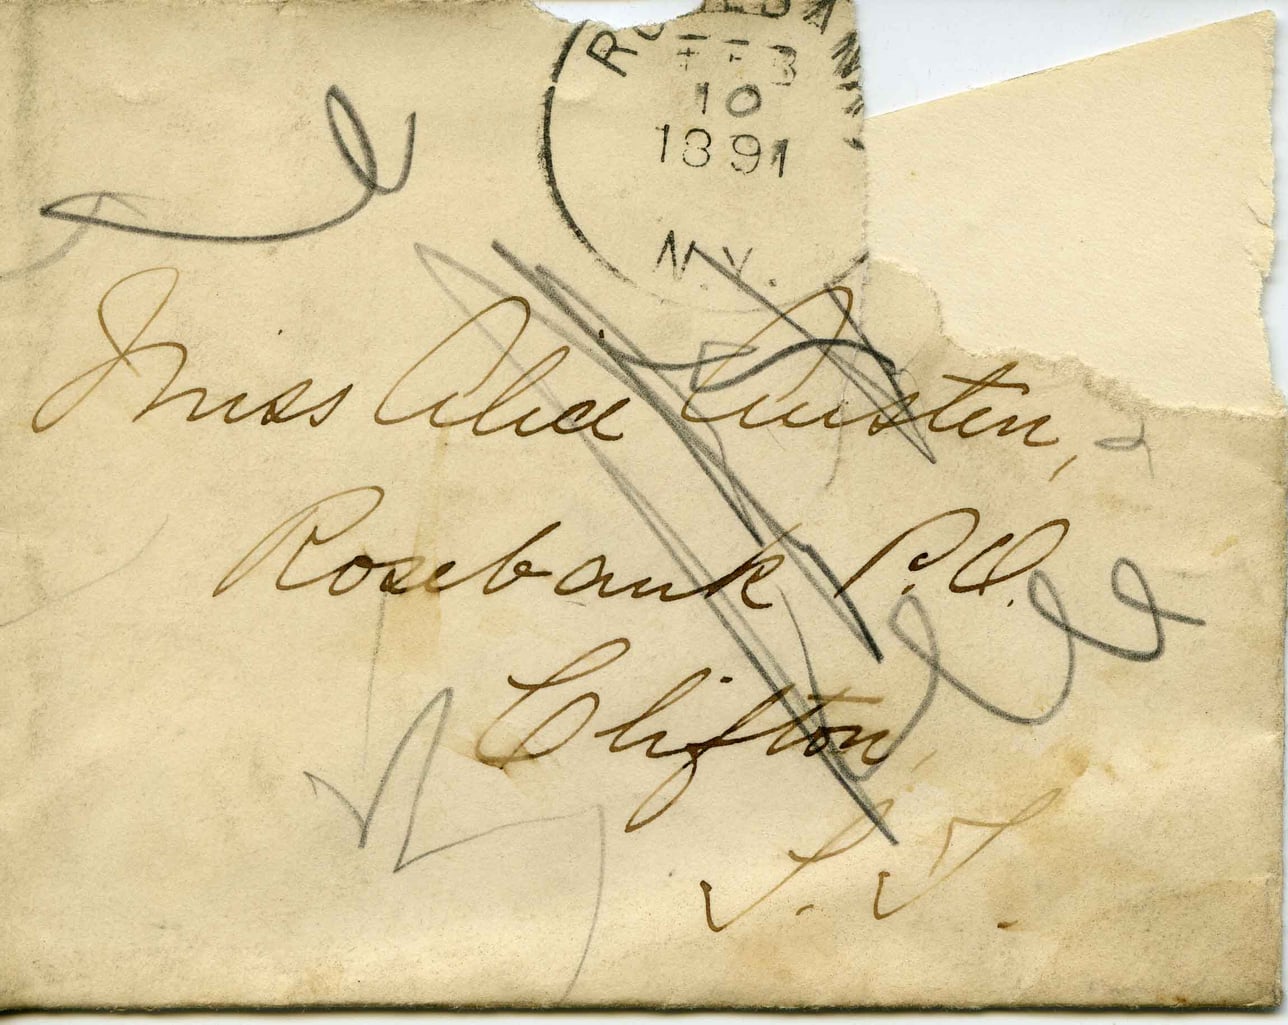 ROSEBANK
FEB
10
1891
N.Y.
Miss Alice Austen,
Rosebank P.O.
Clifton,
S. I.